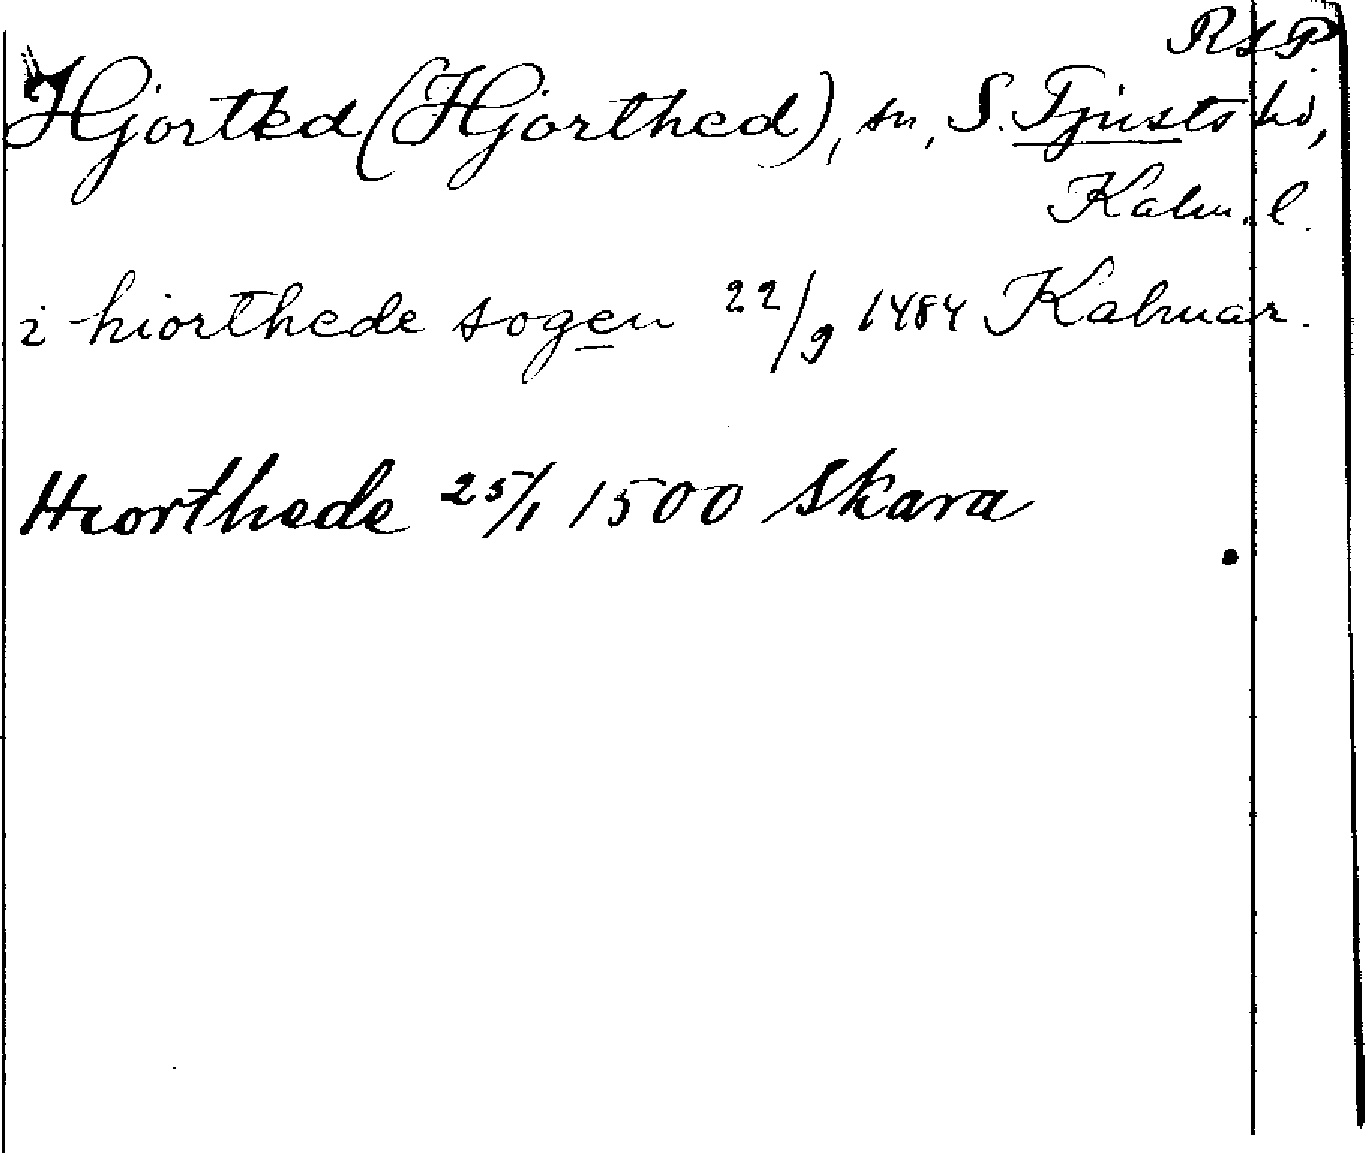 RSP
Hjorted (Hjorthed), sn, S. Tjusts hd,
Kalm. l.
i hiorthede sogen 22/9 1484 Kalmar.
Hiorthede 25/1 1500 Skara